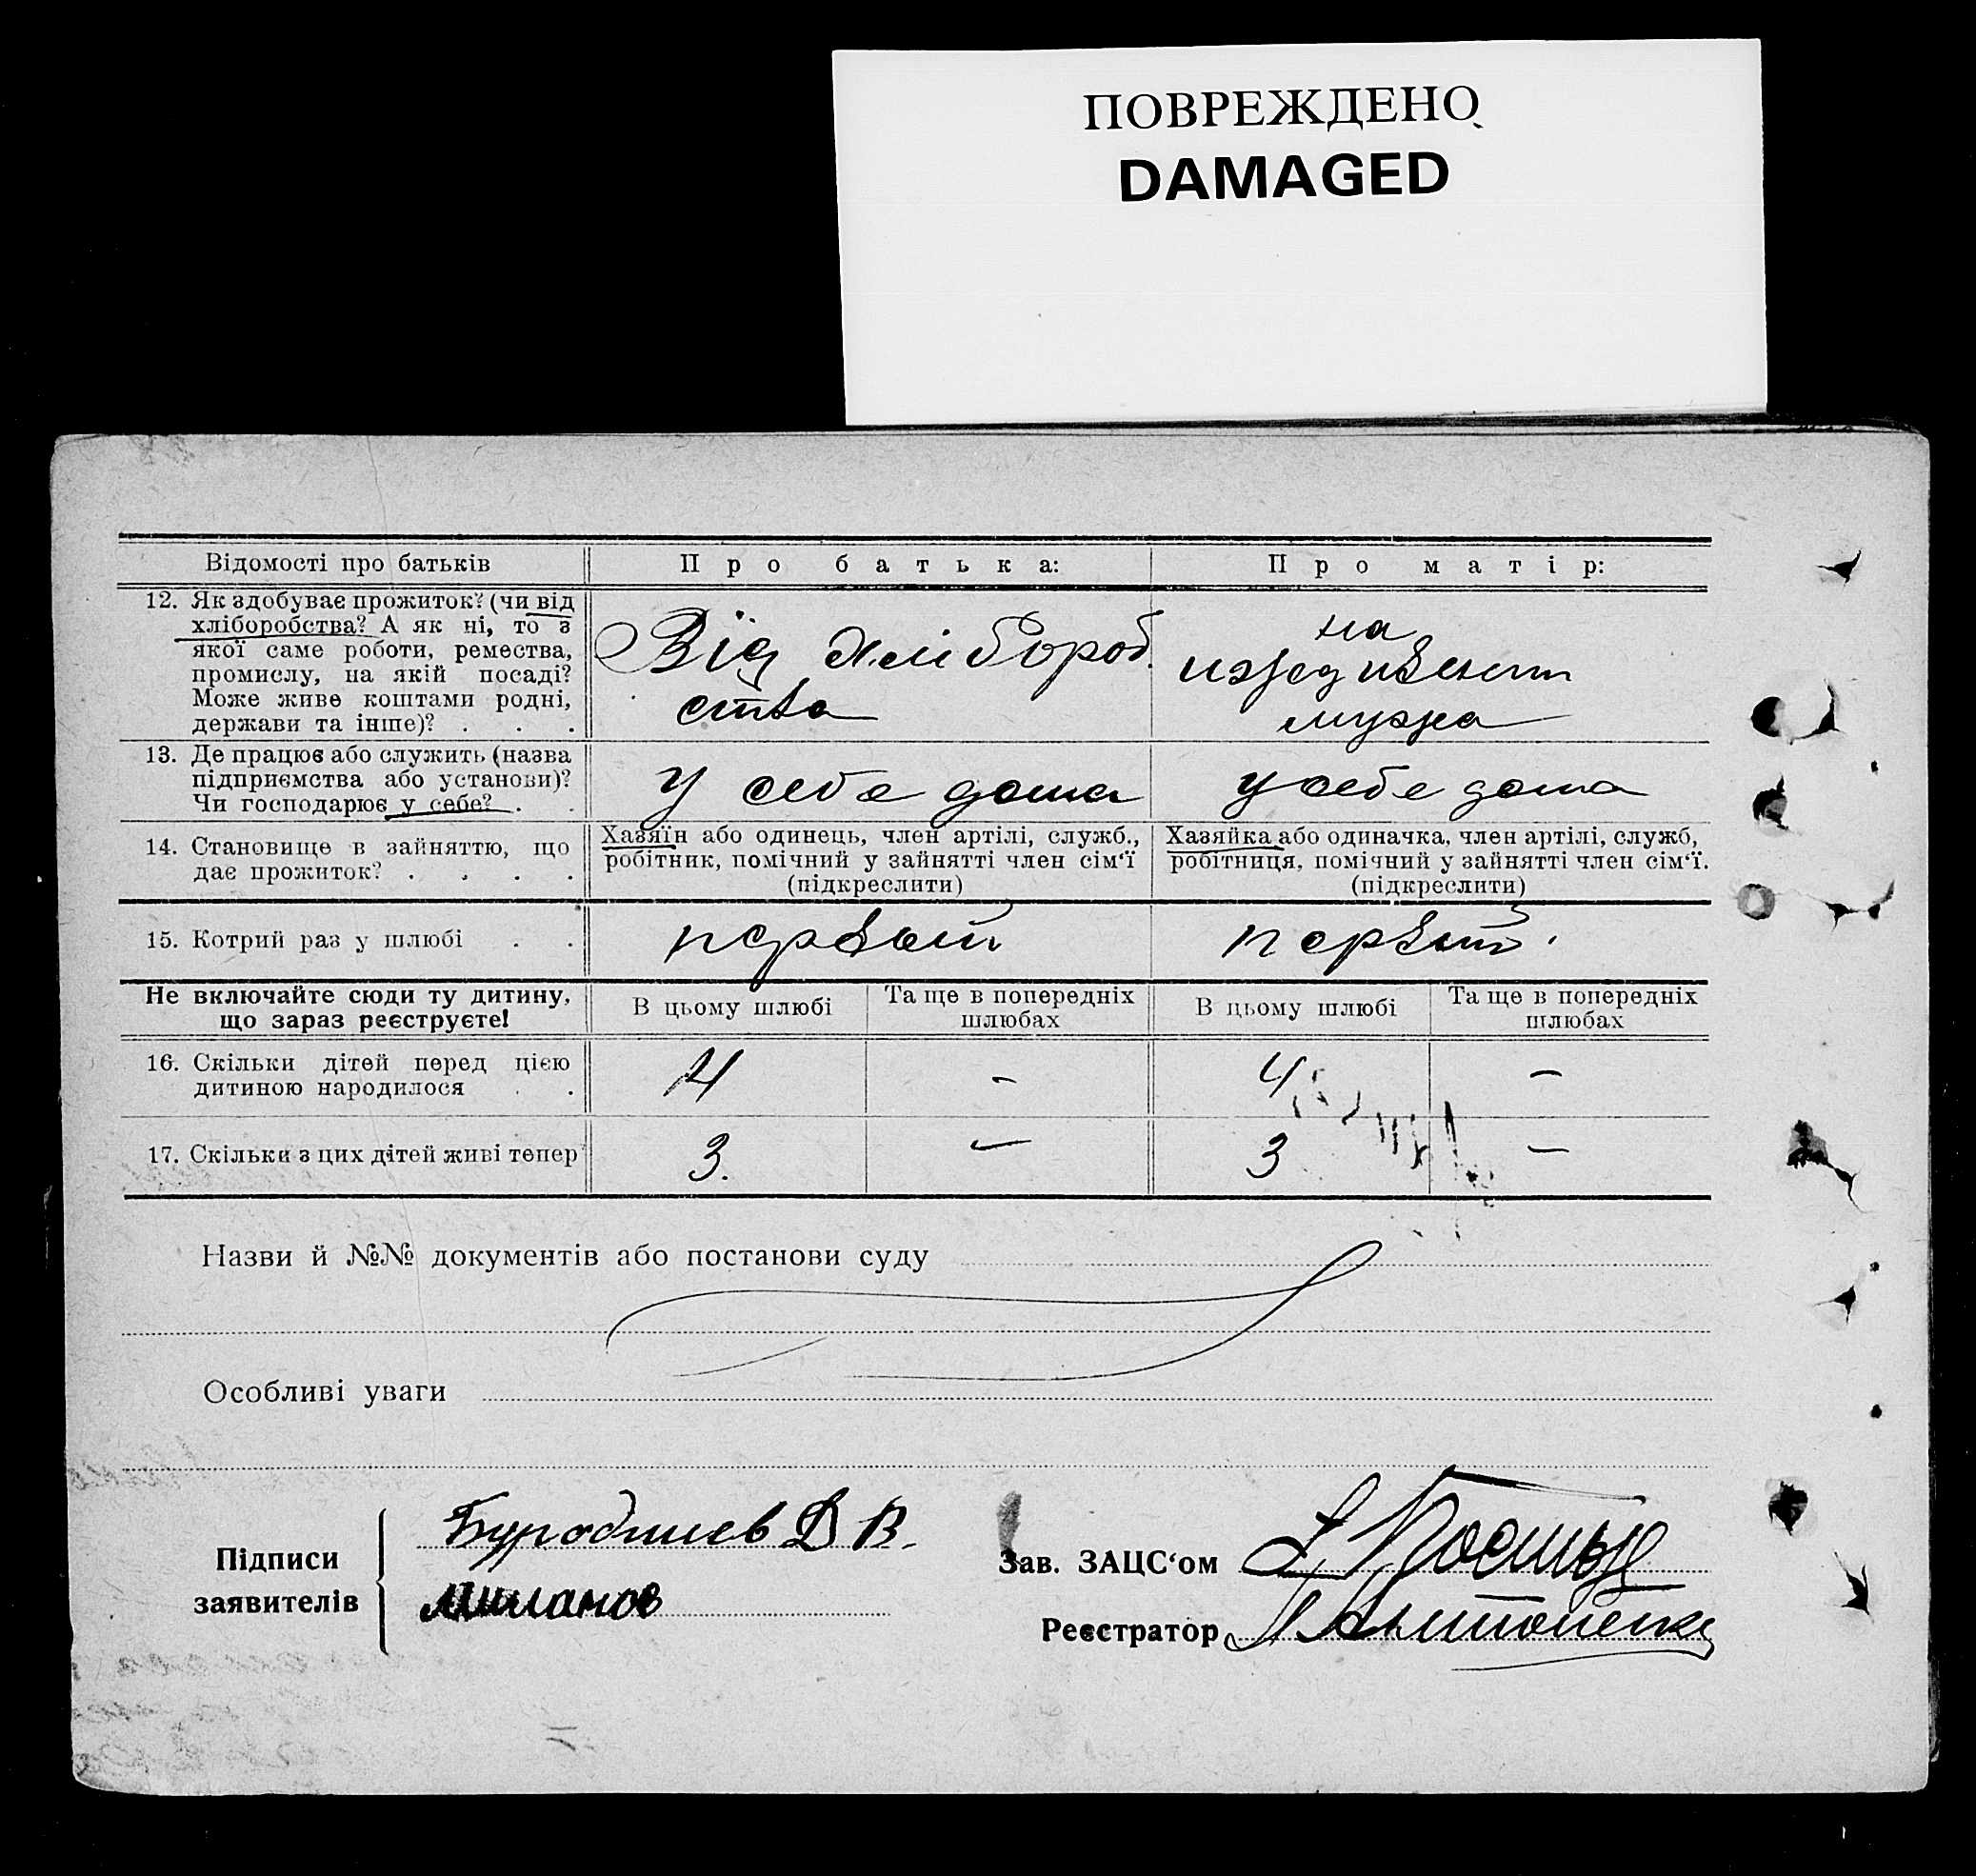 ПОВРЕЖДЕНО
DAMAGED
Відомості про батьків
Про батька:
Про матір:
12. Як здобуває прожиток? (чи від
хліборобства? А як ні, то з
якої саме роботи, ремества,
промислу, на якій посаді?
Може живе коштами родні,
держави та інше)? . . .
Від хлібороб
ства
на
иждивении
мужа
13. Де працює або служить (назва
підприємства або установи)?
Чи господарює у себе? . .
У себе дома
у себе дома
14. Становище в зайняттю, що
дає прожиток? . . . .
Хазяїн або одинець, член артілі, служб.,
робітник, помічний у зайнятті член сім‘ї
(підкреслити)
Хазяйка або одиначка, член артілі, служб,
робітниця, помічний у зайнятті член сім‘ї.
(підкреслити)
15. Котрий раз у шлюбі . .
первый
первый.
Не включайте сюди ту дитину,
що зараз реєструєте!
В цьому шлюбі
Та ще в попередніх
шлюбах
В цьому шлюбі
Та ще в попередніх
шлюбах
16. Скільки дітей перед цією
дитиною народилося . .
4
–
4
–
17. Скільки з цих дітей живі тепер
3.
–
3
–
Назви й №№ документів або постанови суду
Особливі уваги
Підписи
заявителів
Д В.
Зав. ЗАЦС‘ом
Реєстратор